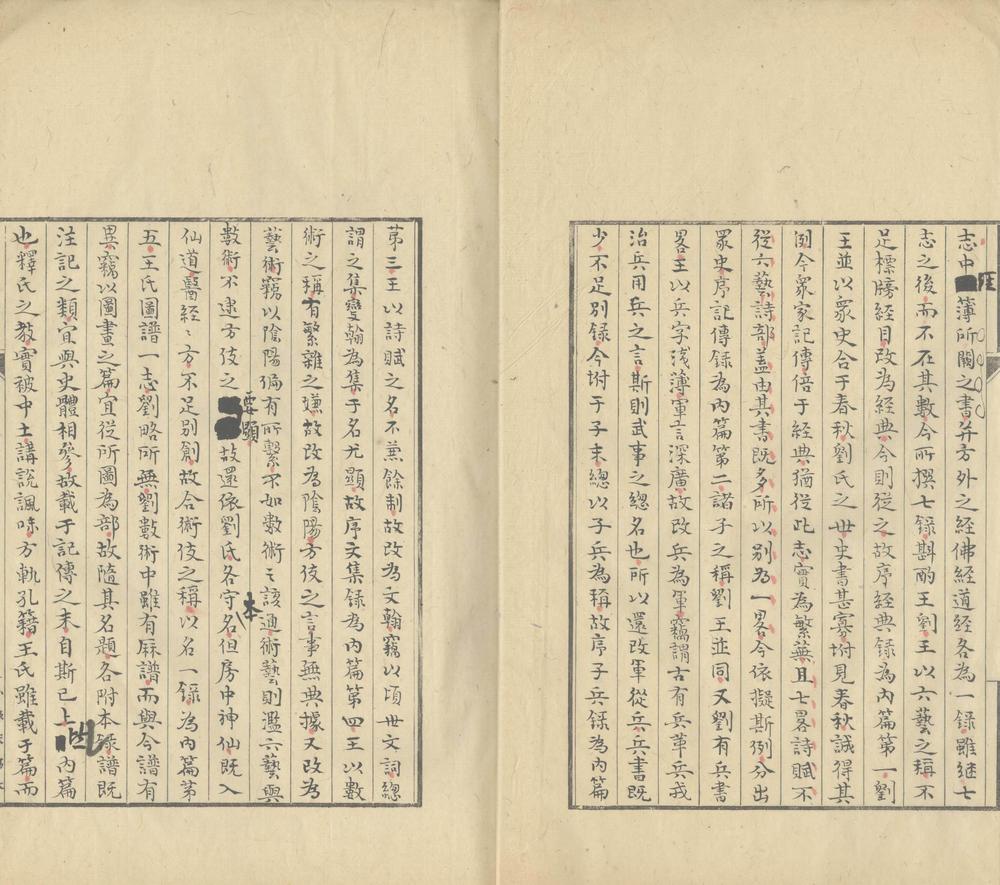 志中簿所闕之書并方外之經佛經道經各為一錄雖繼七
志之後而不在其數今所撰七錄斟酌王劉王以六藝之稱不
足標牓經目改為經典今則從之故序經典錄為內篇第一劉
王並以衆史合于春秋劉氏之世史書甚寡附見春秋誠得其
例今衆家記傳倍于經典猶從此志實為繁蕪且七畧詩賦不
從六藝詩部蓋由其書既多所以別為一畧今依擬斯例分出
衆史序記傳錄為內篇第二諸子之稱劉王並同又劉有兵書
畧王以兵字淺薄軍言深廣故改兵為軍竊謂古有兵革兵戎
治兵用兵之言斯則武事之總名也所以還改軍從兵兵書既
少不足別錄今附于子末總以子兵為稱故序子兵錄為內篇
第三王以詩賦之名不兼餘制故改為文翰竊以頃世文詞總
謂之集變翰為集于名尤顯故序文集錄為內篇第四王以數
術之稱有繁雜之嫌故改為陰陽方伎之言事無典據又改為
藝術竊以陰陽偏有所繫不如數術之該通術藝則濫六藝與
數術不逮方伎之要顯故還依劉氏各守本名但房中神仙既入
仙道醫經經方不足別創故合術伎之稱以名一錄為內篇第
五王氏圖譜一志劉略所無劉數術中雖有厤譜而與今譜有
異竊以圖畫之篇宜從所圖為部故隨其名題各附本錄譜既
注記之類宜與史體相參故載于記傳之末自斯已上皆內篇
也釋氏之教實被中土講說諷味方軌孔籍王氏雖載于篇而